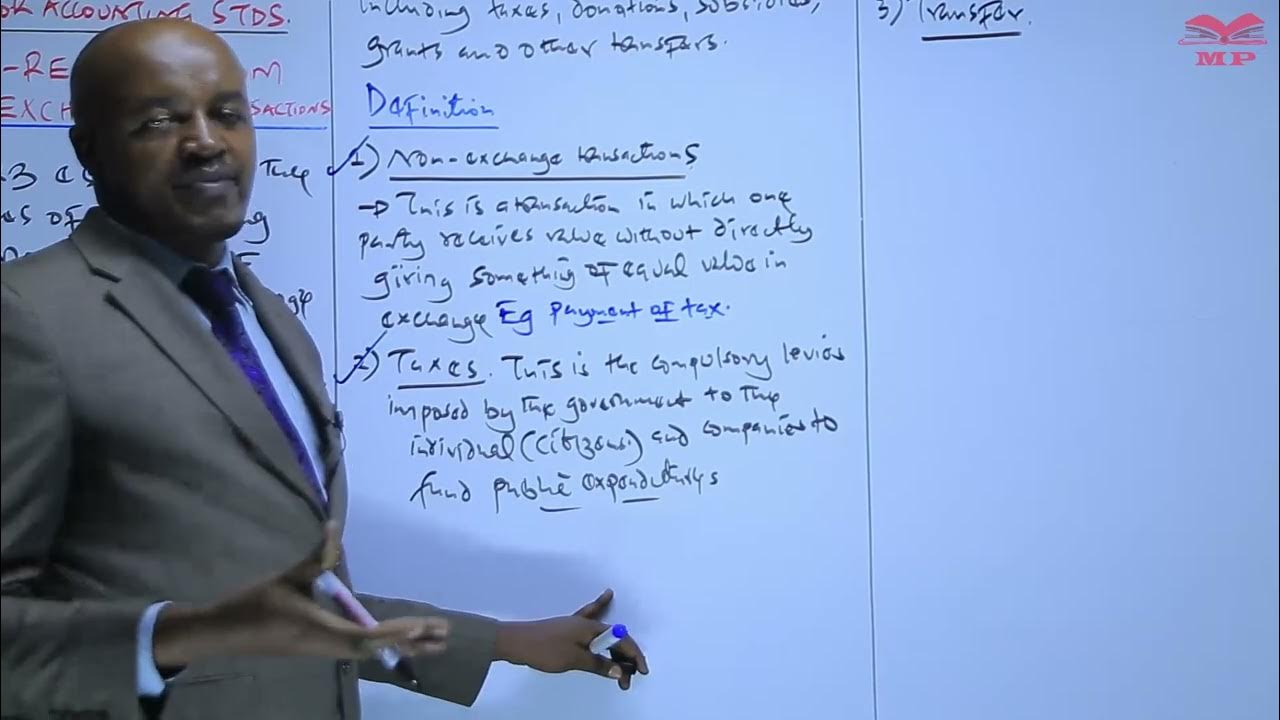 OR ACCOUNTING STDS.
-RE M
EXCH SACTIONS
-3 The
OF ng
including taxes, donations, subsidies,
grants and other transfers.
Definition
1) Non-exchange transactions
→ This is a transaction in which one
party receives value without directly
giving something of equal value in
exchange Eg payment of tax.
2) Taxes. This is the compulsory levies
imposed by the government to the
individual (citizens.) and companies to
fund public expenditurys
3) Transfer.
MP